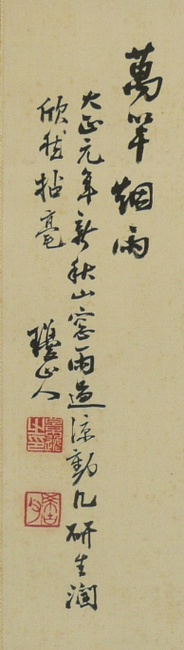 萬竿烟雨
大正元年新秋山窓雨過涼動几研生潤
欣然拈毫
山人